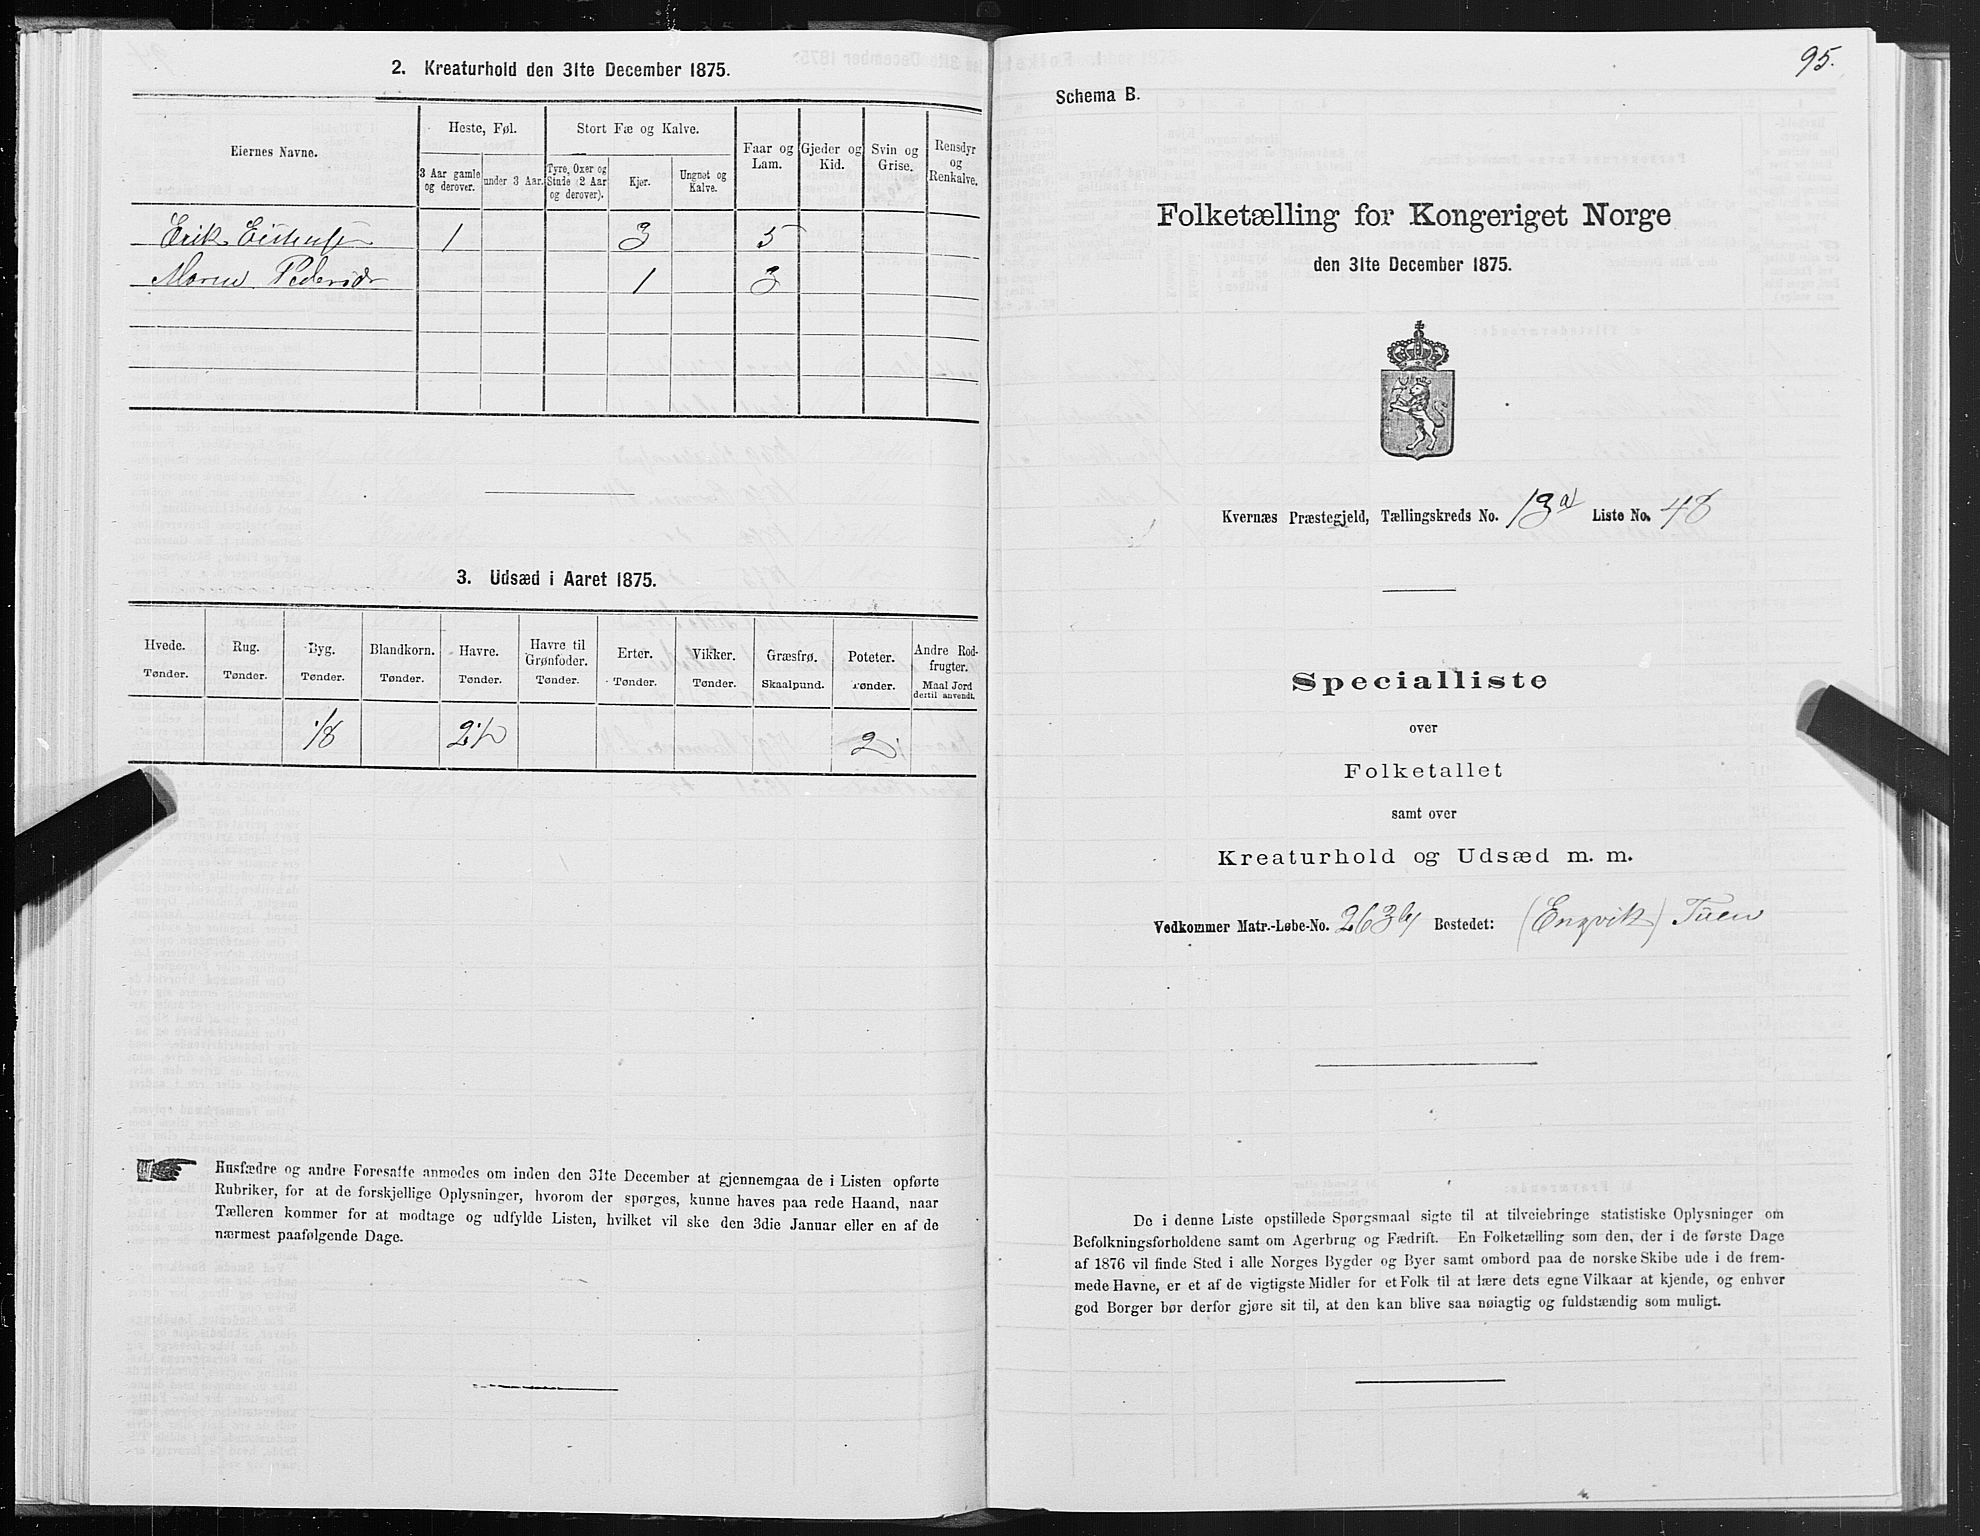 2. Kreaturhold den 31te December 1875.
Eiernes Navne.
Heste, Føl.
Stort Fæ og Kalve.
Faar og Lam.
Gjeder og Kid.
Svin og Grise.
Rensdyr og Renkalve.
3 Aar gamle og derover.
under 3 Aar.
Tyre, Oxer og Stude (2 Aar og derover).
Kjer.
Ungnøt og Kalve.
Erik 1 3 5
Maren Pedersdr 1 3
3. Udsæd i Aaret 1875.
Hvede. Tønder.
Rug. Tønder.
Byg. Tønder.
Blandkorn. Tønder.
Havre. Tønder.
Havre til Grønfoder. Tønder.
Erter. Tønder.
Vikker. Tønder.
Græsfrø. Skaalpund.
Poteter. Tønder.
Andre Rodfrugter. Maal Jord dertil anvendt.
1/8 2 1/2 2
Husfædre og andre Foresatte anmodes om inden den 31te December at gjennemgaa de i Listen opførte
Rubriker, for at de forskjellige Oplysninger, hvorom der spørges, kunne haves paa rede Haand, naar
Tælleren kommer for at modtage og udfylde Listen, hvilket vil ske den 3die Januar eller en af de
nærmest paafølgende Dage.
95.
Schema B.
Folketælling for Kongeriget Norge
den 31te December 1875.
Kvernæs Præstegjeld, Tællingskreds No. 13a Liste No. 48
Specialliste
over
Folketallet
samt over
Kreaturhold og Udsæd m. m.
Vedkommer Matr.-Løbe-No. 263b Bostedet: (Engvik) Tuen
De i denne Liste opstillede Spørgsmaal sigte til at tilveiebringe statistiske Oplysninger om
Befolkningsforholdene samt om Agerbrug og Fædrift. En Folketælling som den, der i de første Dage
af 1876 vil finde Sted i alle Norges Bygder og Byer samt ombord paa de norske Skibe ude i de frem-
mede Havne, er et af de vigtigste Midler for et Folk til at lære dets egne Vilkaar at kjende, og enhver
god Borger bør derfor gjøre sit til, at den kan blive saa nøiagtig og fuldstændig som muligt.